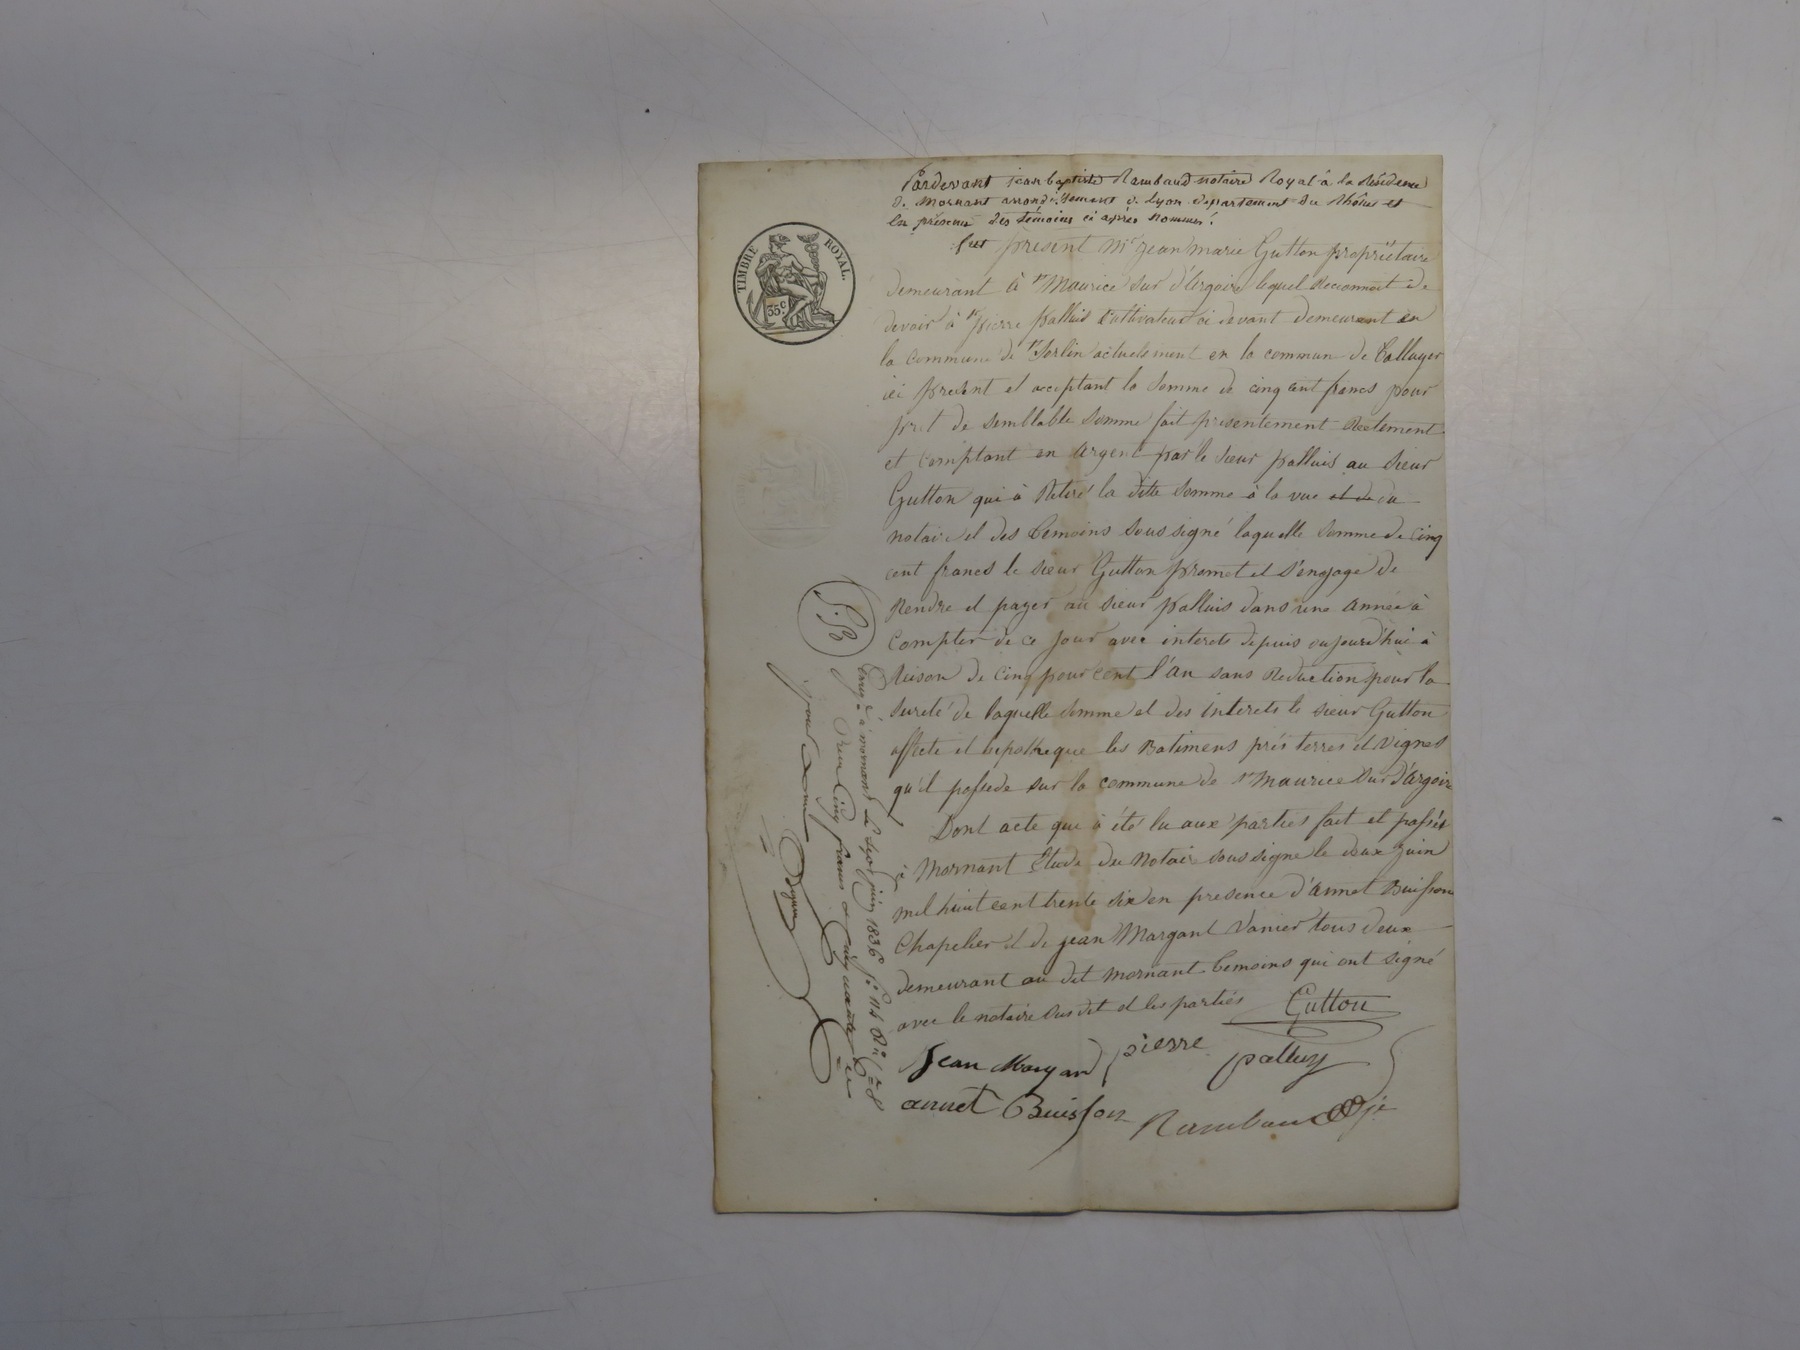 Pardevant jean baptiste Rambaud notaire Royal à la Résidence
de Mornant arrondissement de Lyon département du Rhône et
en présence des témoins ci après nommés:
fut présent Mr jean marie Gutton propriétaire
demeurant à st Maurice sur d'argoire lequel Reconnait de
devoir à sr pierre palluis Cultivateur ci devant demeurant en
la commune de st Sorlin actuelement en la commun de Talluyer
ici présent et acceptant la somme de cinq cent francs pour
pret de semblable somme fait présentement Réelement
et comptant en argent par le sieur palluis au sieur
Gutton qui à Retiré la ditte somme à la vue et de du
notaire et des temoins sous signé laquelle somme de cinq
cent francs le sieur Gutton promet et s'engage de
Rendre et payer au sieur palluis dans une année à
compter de ce jour avec interets depuis aujourd'hui à
Reison de cinq pour cent l'an sans Reduction pour la
sureté de laquelle somme et des interets le sieur Gutton
affecte et hepotheque les Batimens prés terres et vignes
qu'il possede sur la commune de st Maurice sur d'argoire
Dont acte qui à été lu aux parties fait et passés
à Mornant Etude du Notaire sous signé le deux juin
mil huit cent trente six en presence d'annet Buisson
Chapelier et de jean Margant Vanier tous deux
demeurant au dit mornant temoins qui ont signé
avec le notaire susdit et les parties Gutton
Jean Margand pierre palluy
annet Buisson Rambaud
TIMBRE ROYAL.
35c.
à mornant Le juin 1836 fo 114
Reçu Cinq francs